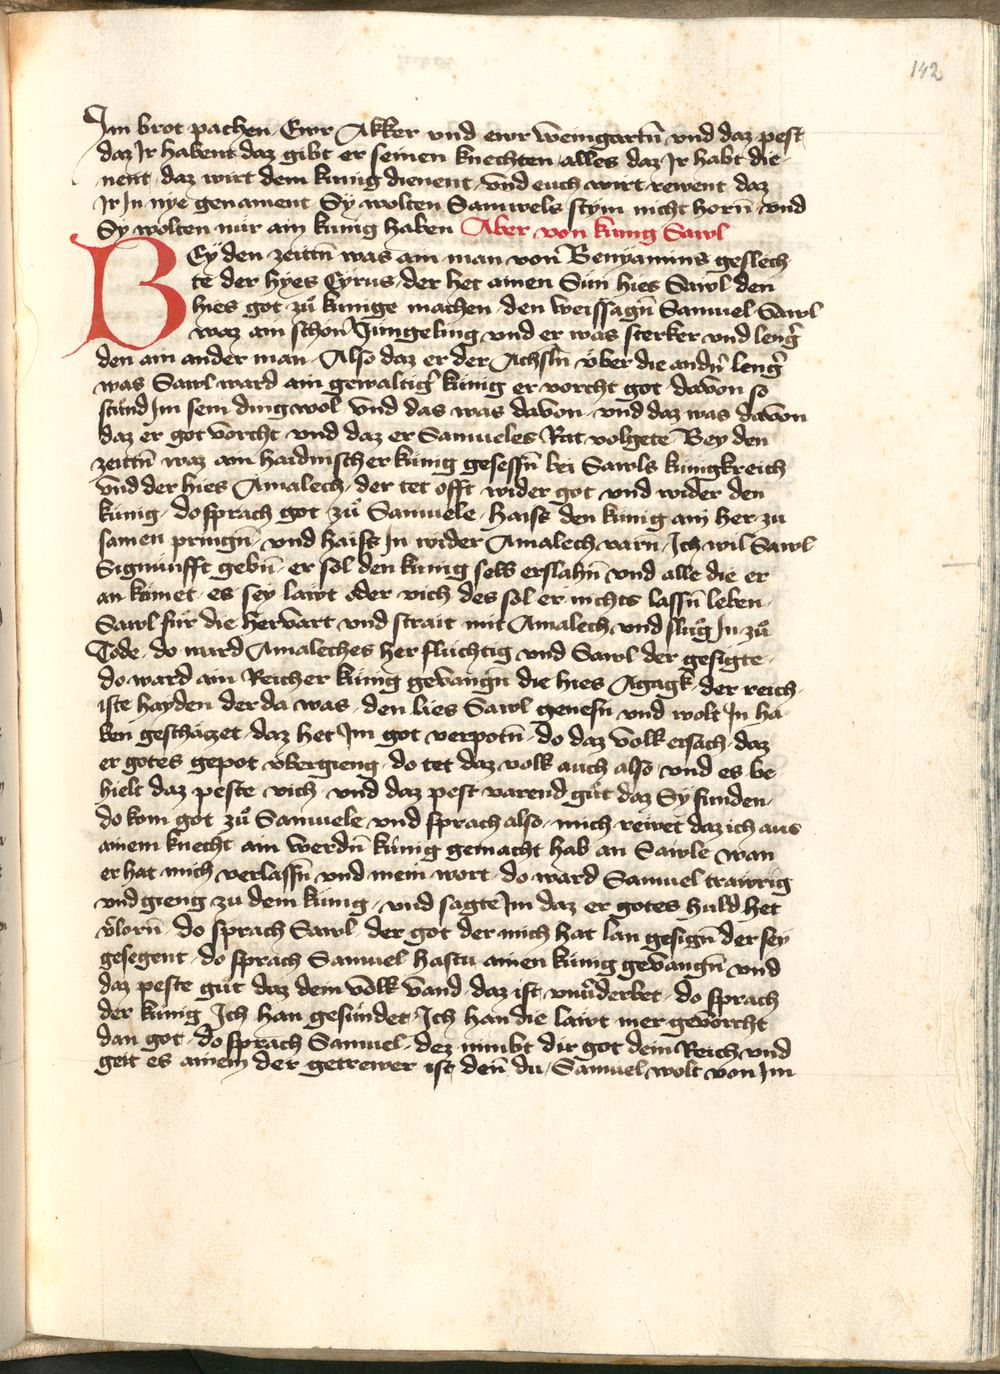 142
Im brot pachen. Ewr Akker vnd ewr Weingartñ vnd daz pest
daz Ir habent daz gibt er seinen knechten alles daz Ir habt die
nent daz wirt dem kunig dienent vnd euch wirt rewent daz
Ir In nye genament Sy wolten Samuels stym nicht horñ vnd
Sy wolten nür ain kunig haben Aber von kunig Sawl
BEy den zeittñ was ain man von Benyamins geslech
te der hyes Cyrus der het ainen Sun hies Sawl den
hies got zů kunige machen den weissagñ Samuel Sawl
waz ain schon Jungeling vnd er was sterker vnd leng̃
den ain ander man Also daz er der Achsln vber die andñ leng̃
was Sawl ward ain gewaltig̃ künig er vorcht got davon so
stůnd Im sein ding wol vnd das was davon vnd daz was davon
daz er got vorcht vnd daz er Samueles Rat volgete Bey den
zeittñ waz ain haidnischer künig gesessñ bei Sawls kunigkreich
vnd der hies Amalech der tet offt wider got vnd wider den
künig do sprach got zů Samuele haiss den künig ain her zu
samen pringñ vnd haiss In wider Amalech varn Ich wil Sawl
Signüfft gebñ er sol den kunig selb erslahñ vnd alle die er
an kömet es sey lawt oder vich des sol er nichts lassñ leben
Sawl für die hervart vnd strait mit Amalech vnd slůg In zů
Tode do ward Amaleches her flüchtig vnd Sawl der gesigte
do ward ain Reicher künig gevangñ die hies Agagk der reich
iste hayden der da was den lies Sawl genesñ vnd wolt In ha
ben geschäczet daz het Im got verpotñ do daz volk ersach daz
er gotes gepot vbergieng do tet daz volk auch also vnd es be
hielt daz peste vich vnd daz pest varend gůt daz Sy funden
do kom got zů Samuele vnd sprach also mich rewet daz ich aus
ainem knecht ain werdñ künig gemacht hab an Sawle wan
er hat mich verlassñ vnd mein wort do ward Samuel trawrig
vnd gieng zu dem künig vnd sagte Im daz er gotes huld het
v̂lorñ do sprach Sawl der got der mich hat lan gesigñ der sey
gesegent do sprach Samuel hastu ainen künig gevangñ vnd
daz peste gůt daz dem volk vand daz ist vnũderbet do sprach
der künig Ich han gesündet Ich han die lawt mer gevorcht
dan got do sprach Samuel dez nimbt dir got dein Reich vnd
geit es ainem der getrewer ist deñ du Samuel wolt von Im